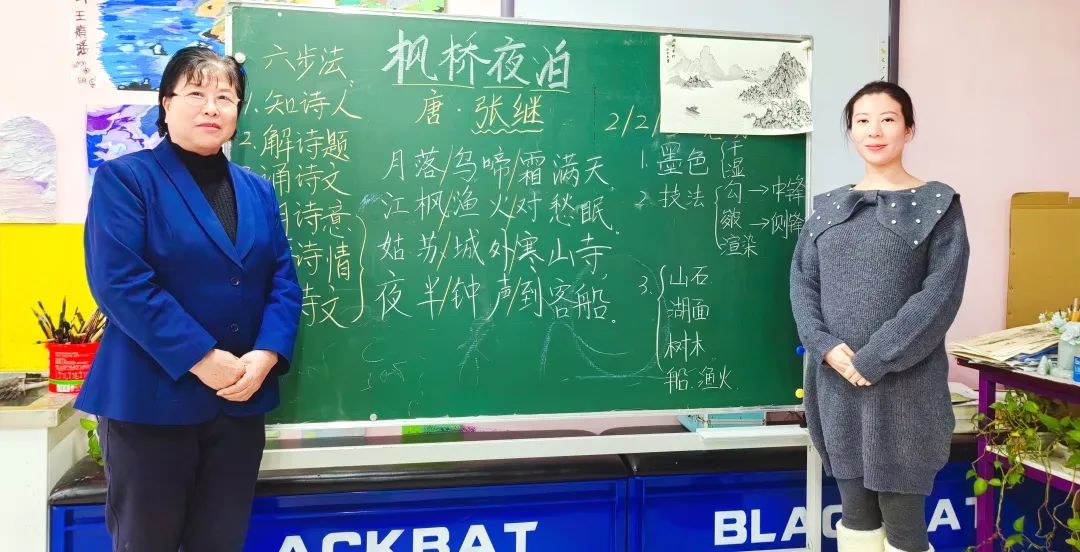 六步法
1.知诗人
2.解诗题
诵诗文
诗意
诗情
诗文
枫桥夜泊
唐·张继
月落/乌啼/霜满天.
江枫/渔火/对愁眠.
姑苏/城外/寒山寺
夜半/钟声/到客船.
1.墨色
干
湿
2.技法
勾→中锋
皴→侧锋
渲染
3.
山石
湖面
树木
船.渔火
ACKBAT
BLA
AT